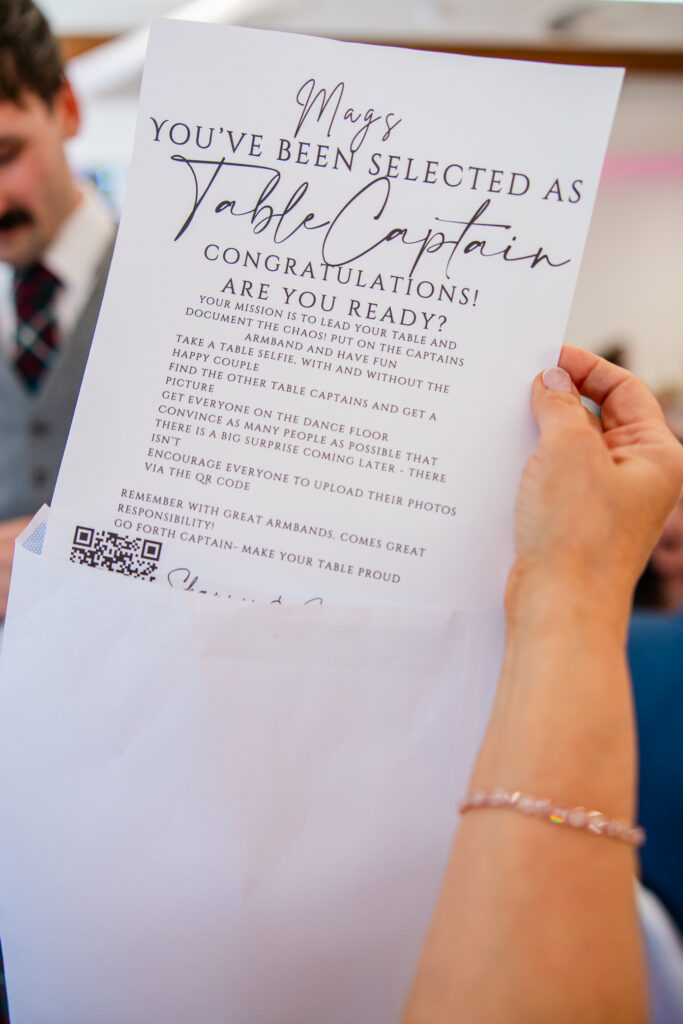 Mags
YOU'VE BEEN SELECTED AS
Table Captain
CONGRATULATIONS!
ARE YOU READY?
YOUR MISSION IS TO LEAD YOUR TABLE AND
DOCUMENT THE CHAOS! PUT ON THE CAPTAINS
ARMBAND AND HAVE FUN
TAKE A TABLE SELFIE, WITH AND WITHOUT THE
HAPPY COUPLE
FIND THE OTHER TABLE CAPTAINS AND GET A
PICTURE
GET EVERYONE ON THE DANCE FLOOR
CONVINCE AS MANY PEOPLE AS POSSIBLE THAT
THERE IS A BIG SURPRISE COMING LATER - THERE
ISN'T
ENCOURAGE EVERYONE TO UPLOAD THEIR PHOTOS
VIA THE QR CODE
REMEMBER WITH GREAT ARMBANDS, COMES GREAT
RESPONSIBILITY!
GO FORTH CAPTAIN- MAKE YOUR TABLE PROUD